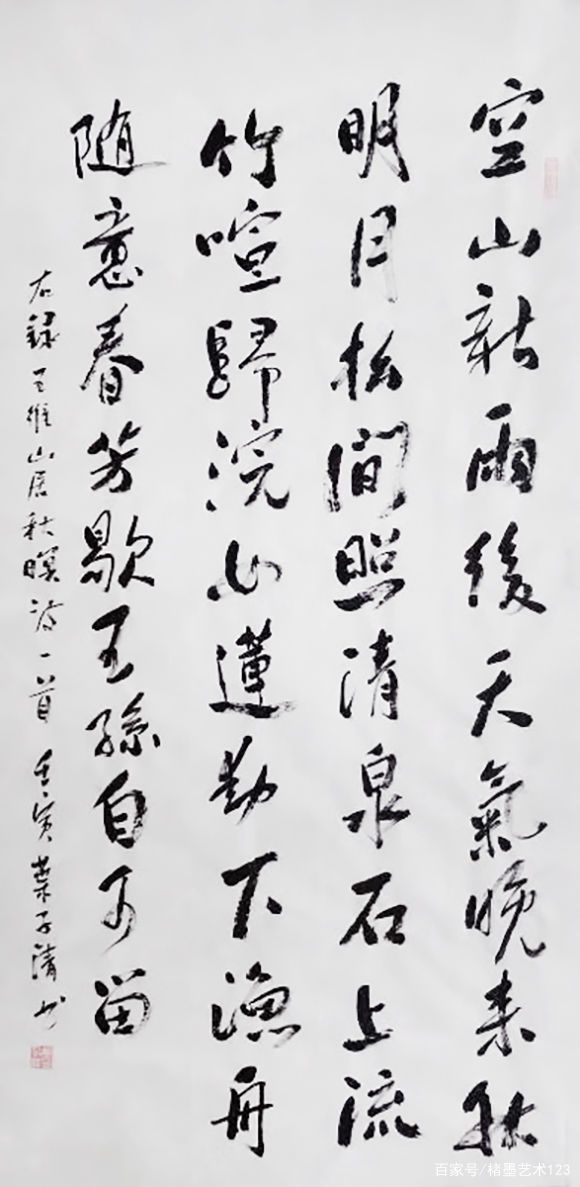 空山新雨後天氣晚来秋
明月松間照清泉石上流
竹喧歸浣女蓮動下漁舟
随意春芳歇王孫自可留
右録王維山居秋暝诗一首 壬寅葉子清书
百家号/楮墨艺术123